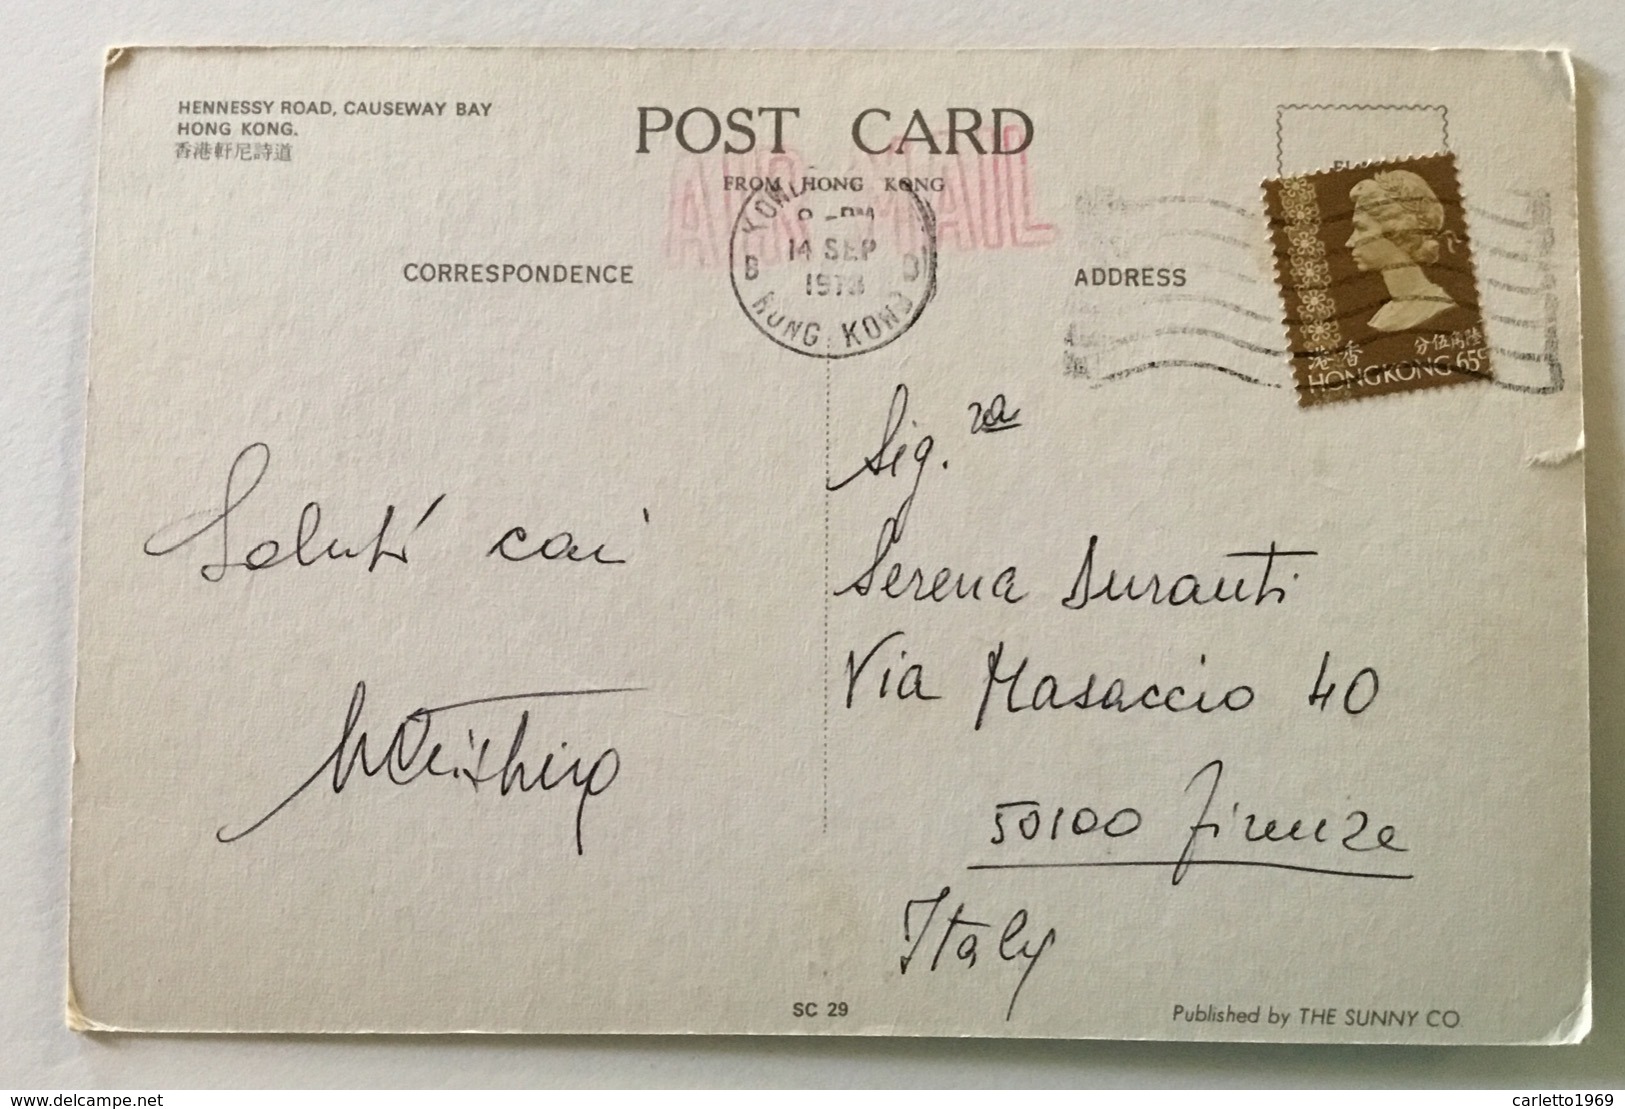 HENNESSY ROAD, CAUSEWAY BAY
HONG KONG.
香港軒尼詩道
POST CARD
FROM HONG KONG
AIR MAIL
PM
14 SEP
B B
HONG KONG
CORRESPONDENCE
ADDRESS
香港
陸角伍分
HONG KONG 65c
Saluti cari
Sig.ra
Serena Duranti
Via Masaccio 40
50100 Firenze
Italy
SC 29
Published by THE SUNNY CO
www.delcampe.net
carletto1969